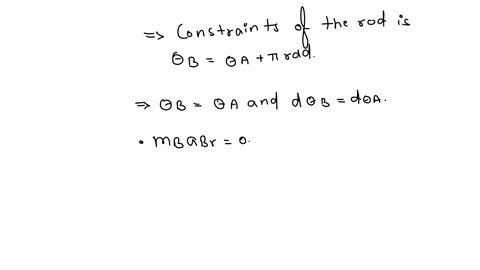 ⇒ Constraints of the rod is
θB = θA + π rad.
⇒ θB = θA and dθB = dθA.
• mBaBr = 0.